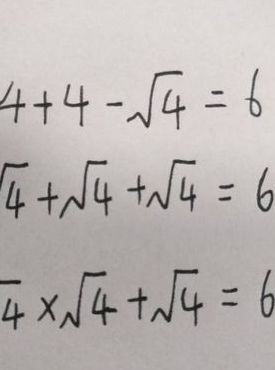 4+4-√4=6
√4+√4+√4=6
√4×√4+√4=6